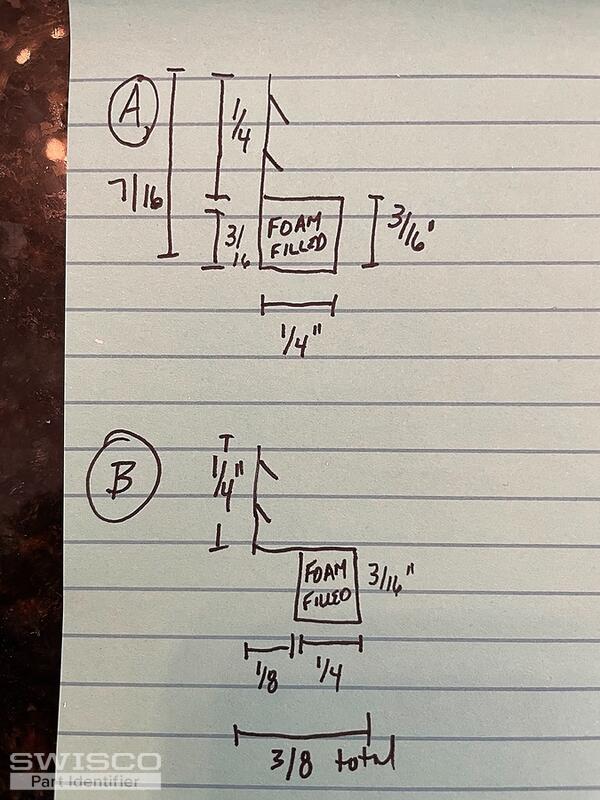 A
7/16
1/4
3/16
FOAM
FILLED
3/16"
1/4"
B
1/4"
FOAM
FILLED
3/16"
1/8
1/4
3/8 total
SWISCO
Part Identifier